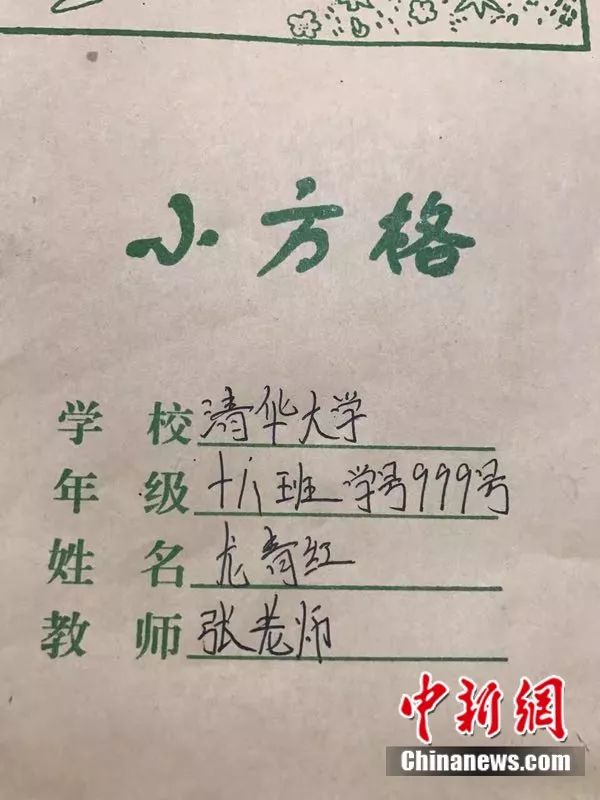 小方格
学校 清华大学
年级 十八班 学号999号
姓名 尤育红
教师 张老师
中新网
Chinanews.com